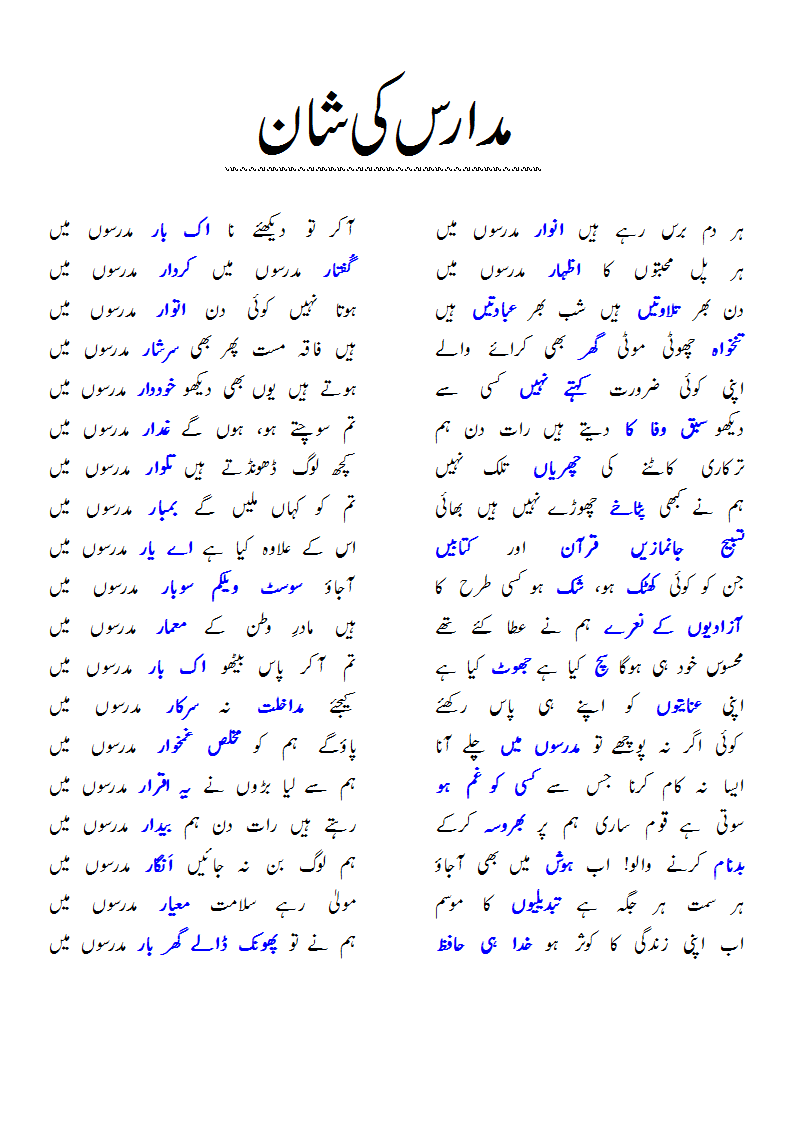 مدارس کی شان
ہر دم برس رہے ہیں انوار مدرسوں میں آکر تو دیکھئے نا اک بار مدرسوں میں
ہر پل محبتوں کا اظہار مدرسوں میں گفتار مدرسوں میں کردار مدرسوں میں
دن بھر تلاوتیں ہیں شب بھر عبادتیں ہیں ہوتا نہیں کوئی دن اتوار مدرسوں میں
تنخواہ چھوٹی موٹی گھر بھی کرائے والے ہیں فاقہ مست پھر بھی سرشار مدرسوں میں
اپنی کوئی ضرورت کہتے نہیں کسی سے ہوتے ہیں یوں بھی دیکھو خوددار مدرسوں میں
دیکھو سبق وفا کا دیتے ہیں رات دن ہم تم سوچتے ہو، ہوں گے غدار مدرسوں میں
ترکاری کاٹنے کی چھریاں تلک نہیں کچھ لوگ ڈھونڈتے ہیں تلوار مدرسوں میں
ہم نے کبھی پٹاخے چھوڑے نہیں ہیں بھائی تم کو کہاں ملیں گے بمبار مدرسوں میں
تسبیح جانمازیں قرآن اور کتابیں اس کے علاوہ کیا ہے اے یار مدرسوں میں
جن کو کوئی کھٹک ہو، شک ہو کسی طرح کا آجاؤ سوسٹ ویلکم سوبار مدرسوں میں
آزادیوں کے نعرے ہم نے عطا کئے تھے ہیں مادرِ وطن کے معمار مدرسوں میں
محسوس خود ہی ہوگا سچ کیا ہے جھوٹ کیا ہے تم آکر پاس بیٹھو اک بار مدرسوں میں
اپنی عنایتوں کو اپنے ہی پاس رکھئے کیجئے مداخلت نہ سرکار مدرسوں میں
کوئی اگر نہ پوچھے تو مدرسوں میں چلے آنا پاؤگے ہم کو مخلص غمخوار مدرسوں میں
ایسا نہ کام کرنا جس سے کسی کو غم ہو ہم سے لیا بڑوں نے یہ اقرار مدرسوں میں
سوتی ہے قوم ساری ہم پر بھروسہ کرکے رہتے ہیں رات دن ہم بیدار مدرسوں میں
بدنام کرنے والو! اب ہوش میں بھی آجاؤ ہم لوگ بن نہ جائیں انگار مدرسوں میں
ہر سمت ہر جگہ ہے تبدیلیوں کا موسم مولیٰ رہے سلامت معیار مدرسوں میں
اب اپنی زندگی کا کوثر ہو خدا ہی حافظ ہم نے تو پھونک ڈالے گھر بار مدرسوں میں